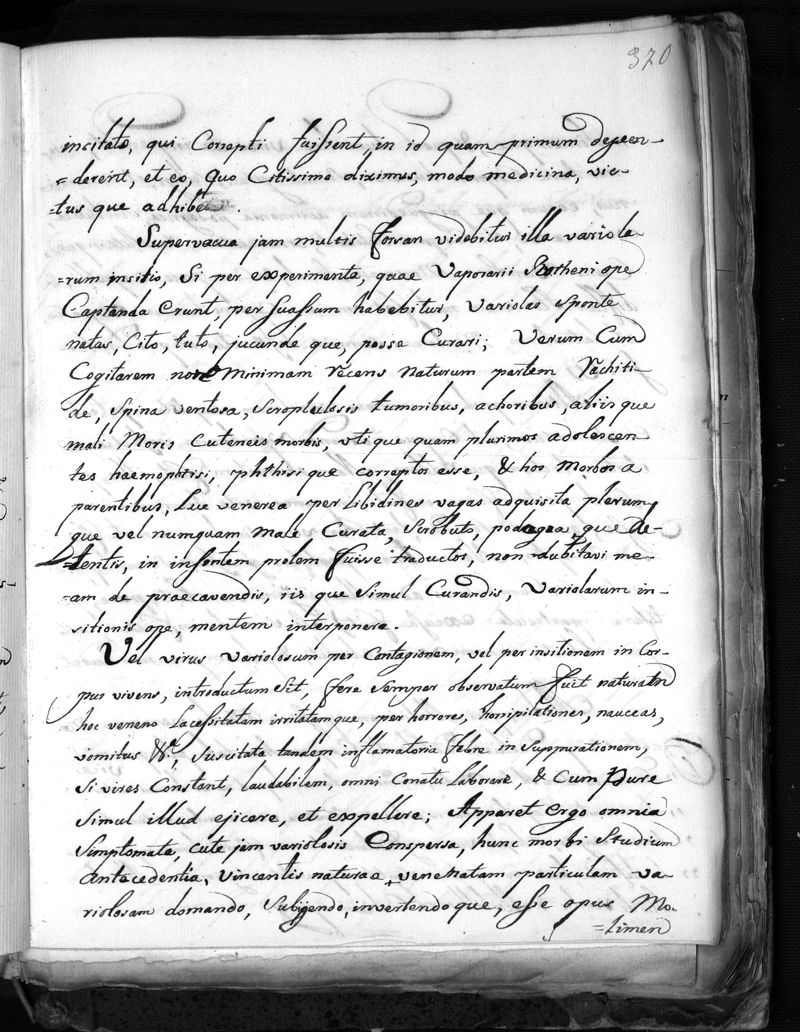 370
incitato, qui Correpti fuissent, in id quam primum descen-
=derent, et eo, quo Citissime diximus, modo medicina, vic-
=tus que adhibe
Supervacua jam multis forsan videbitur illa variola-
=rum insitio, Si per experimenta, quae Vaporarii Rotheni ope
Captanda Erunt, per suassum habebitur, Variolas Sponte
natas, Cito, tuto, jucunde que, posse Curari; Verum Cum
Cogitarem non Minimam recens Naturum partem Rachiti-
de, Spina ventosa, Scrophulosis tumoribus, achoribus, aliis que
mali Moris Cuteneis morbis, uti que quam plurimos adolescen
tes haemophtisi, phthisi que correptos esse, & hos Morbos a
parentibus, Lue venerea per Libidines vagas adquisita plerum
que vel numquam Male Curata, Scrobuto, podagra, que de-
=tentis, in insontem prolem fuisse traductos, non dubitavi me-
=am de praecavendis, iis que Simul Curandis, Variolarum in-
sitionis ope, mentem interponere.
Vel virus Variolosum per Contagionem, vel per insitionem in Cor-
pus vivens, introductum Sit, fere Semper observatum fuit naturam
hoc veneno Lacessitatam irritatamque, per horrores, horripilationes, nauceas,
vomitus &c, Suscitata tandem inflamatoria febre in Suppurationem,
Si vires Constant, laudabilem, omni Conatu Laborare, & Cum Pure
Simul illud ejicere, et expellere; Apparet Ergo omnia
Simptomate, Cute jam variolosis Conspersa, hunc morbi Studium
Antecedentia, Vincentis naturae, venenatam particulam va-
riolosam domando, Subigendo, invertendo que, esse opus Mo-
=limen